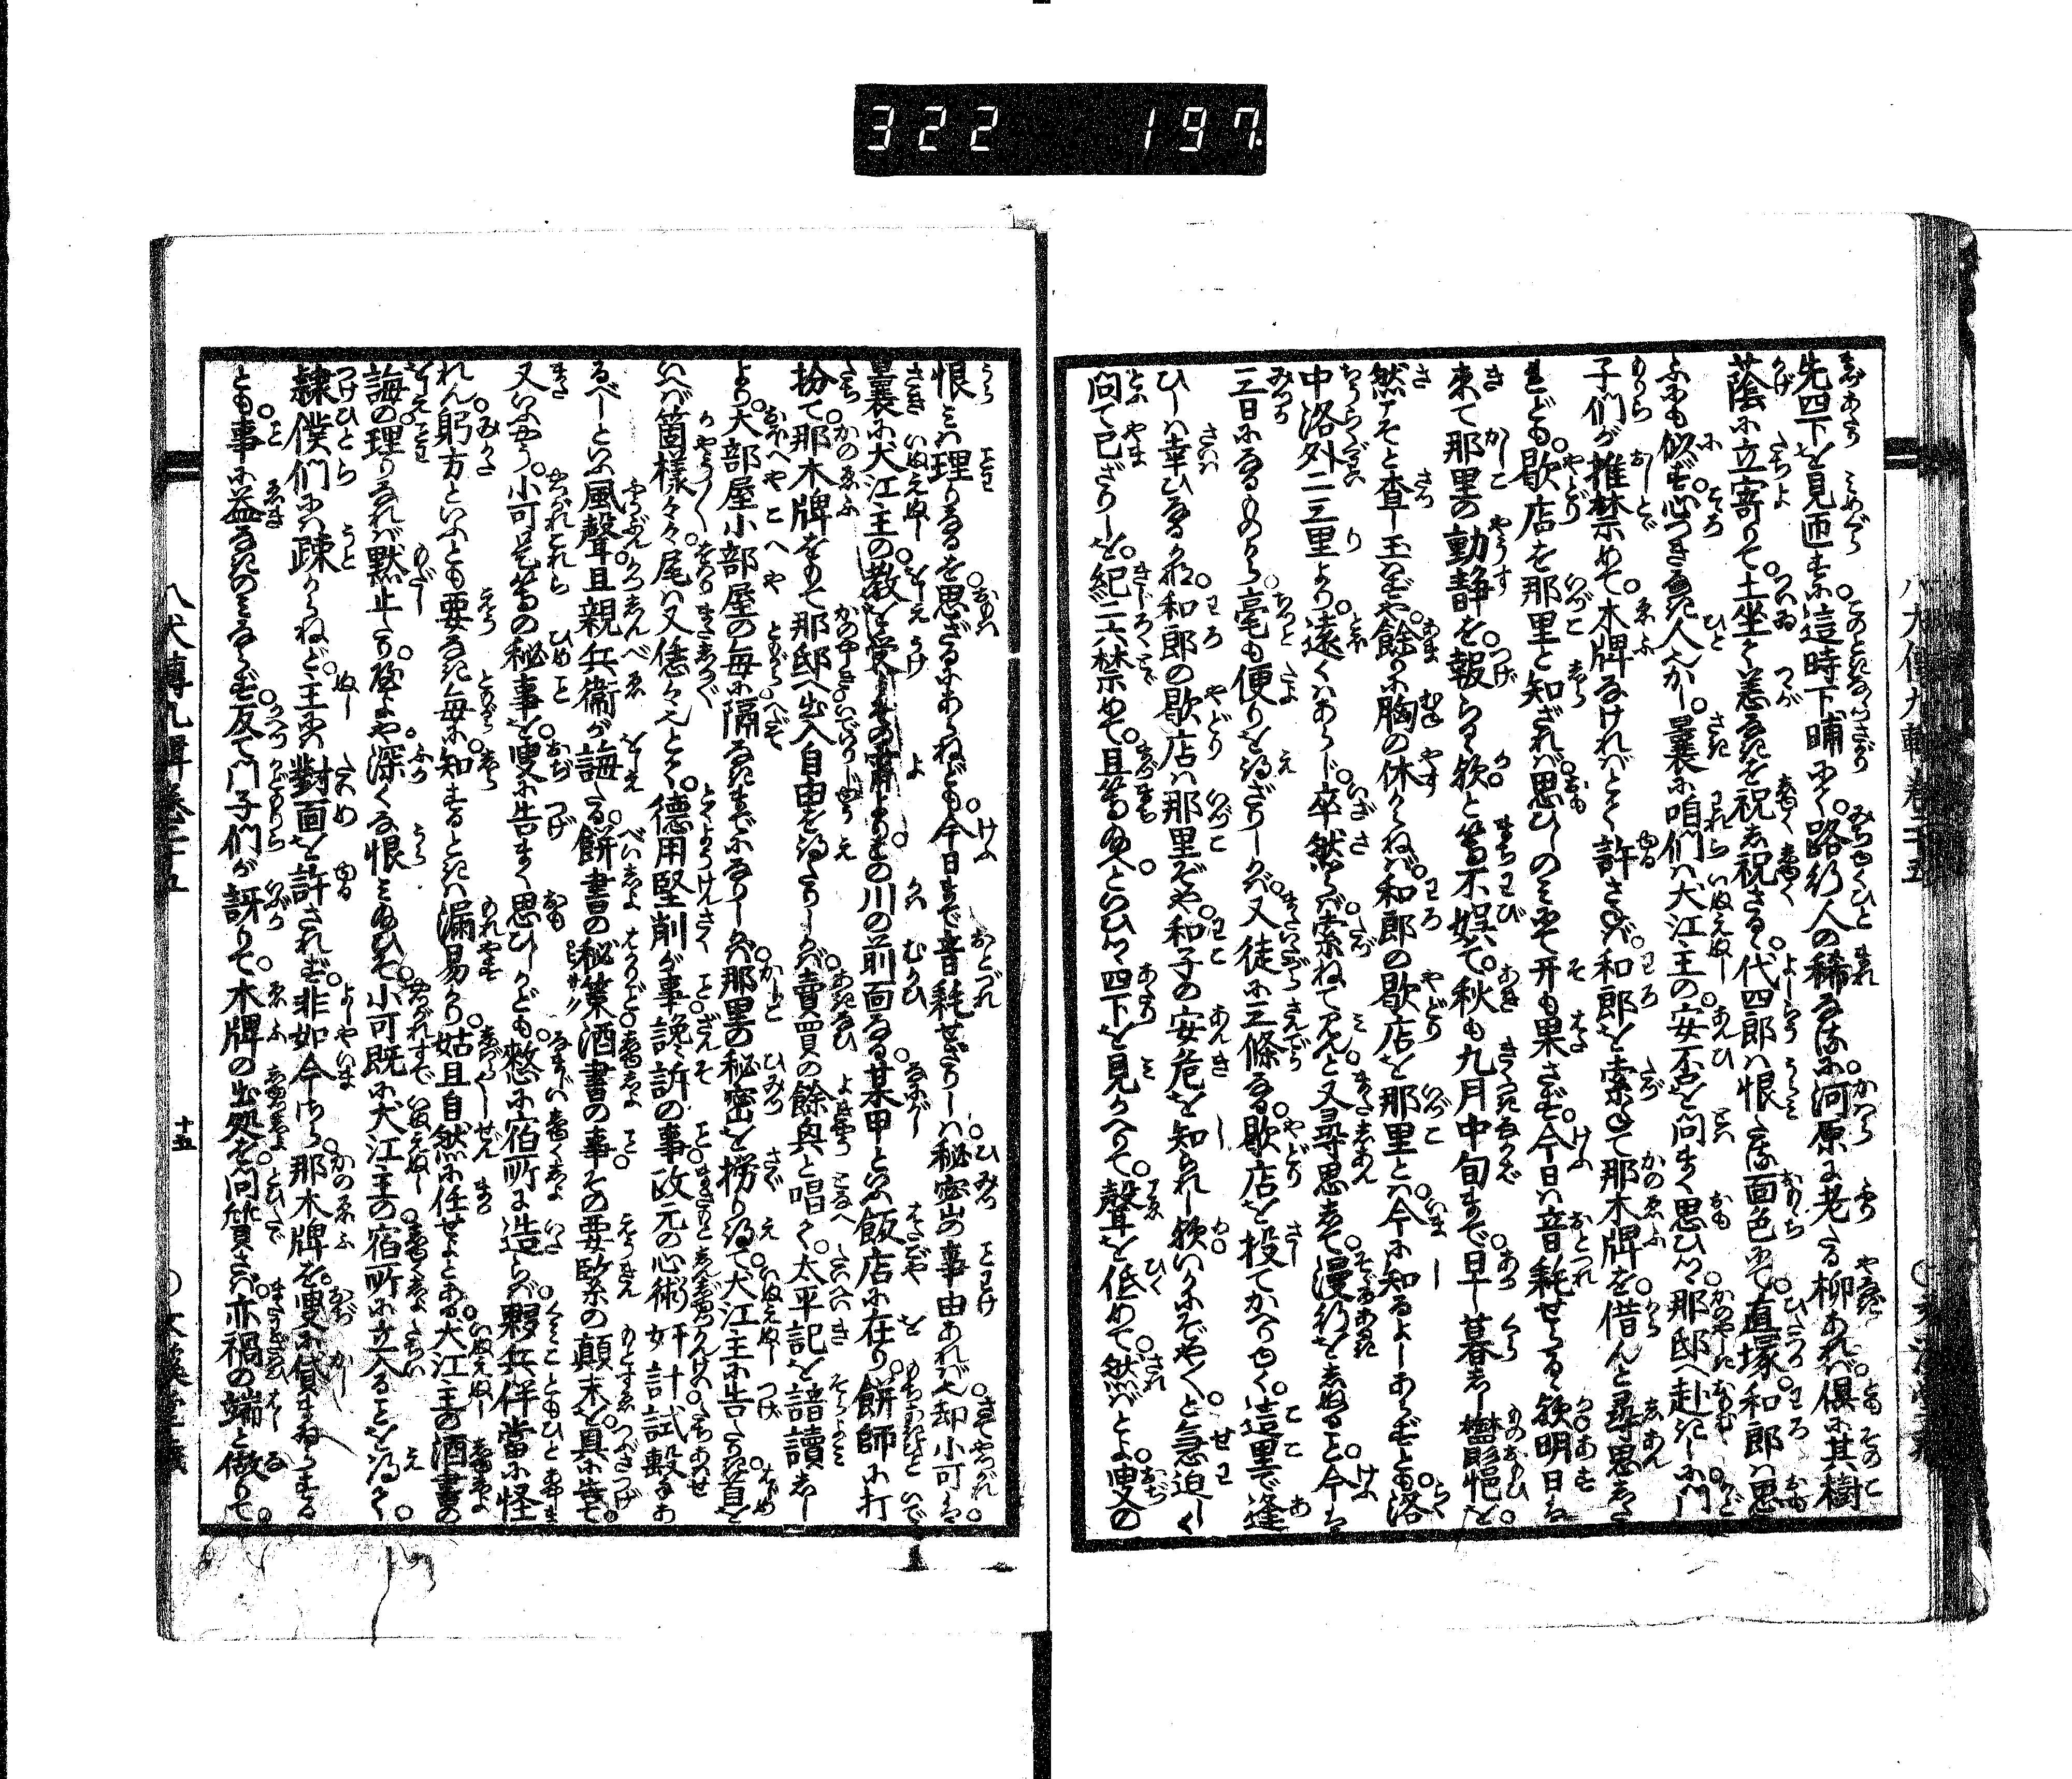 322 197
先四下を見匝すに這時下晡にて路行人の稀なるに河原に老たる柳あれバ倶に其樹
蔭に立寄りて土坐て恙なきを祝し祝さる代四郎ハ恨しき面色にて直塚和郎ハ思
ふにも似ず心つきなき人かな曩に咱們ハ犬江主の安否を問まく思ひつゝ那邸へ赴きしに門
子們が推禁めて木牌なけれバとて許さず和郎を索ねて那木牌を借んと尋思しぬ
れども歇店を那里と知ざれバ思ひしのミにて开も果さず今日ハ音耗せらるゝ欤明日ハ
来て那里の動静を報らるゝ欤と等不娯て秋も九月中旬まで早暮し欝悒を
然こそと査し玉ハずや餘りに胸の休からねバ和郎の歇店を那里とハ今に知るよしあらずとも洛
中洛外二三里より遠くハあらじ卒然らバ索ねて見んと又尋思して漫行をしぬること今日
三日になるものから毫も便りを得ざりしかバ又徒に三條なる歇店を投てかへるさに這里で逢
ひしハ幸ひなるかな和郎の歇店ハ那里ぞや和子の安危を知られし欤いかにぞや〳〵と急迫しく
問て已ざりしを紀二六禁めて且等給へといひつゝ四下を見かへりて聲を低めて然ればとよ叟の
恨ミハ理りなるを思ざるにあらねども今日まで音耗せざりしハ秘密の事由あれバ也却小可ハ
曩に犬江主の教を受しその宵よりその川の前面なる某甲といふ飯店に在り餅師に打
扮て那木牌をもて那邸へ出入自由を得たりしかバ賣買の餘興と唱て太平記を諳讀し
より大部屋小部屋の毎に隔なきまでになりしかバ那里の秘密を撈り得て犬江主に告たき首を
いへバ箇樣々々尾ハ又恁々とて德用堅削が事讒訴の事政元の心術奸計試撃あ
るべしといふ風聲且親兵衛が誨たる餅書の秘策酒書の事その要緊の顛末を具に告て
又いふやう小可是等の秘事を叟に告まく思ひしかども憖に宿所に造らバ夥兵伴當に怪
れん躬方といふとも要なき毎に知するときハ漏易かり姑且自然に任せよとある犬江主の酒書の
誨の理りなれバ黙止たり寔よや深くな恨ミ給ひそ小可既に犬江主の宿所に立入ることを得て
隷僕們にハ疎からねど主にハ對面を許されず非如今にはら那木牌を叟に貸まゐらする
とも事に益なきのミならず反て門子們が訝りて木牌の出処を問質さバ亦禍の端と做りて
八犬傳九輯卷二十五
十五